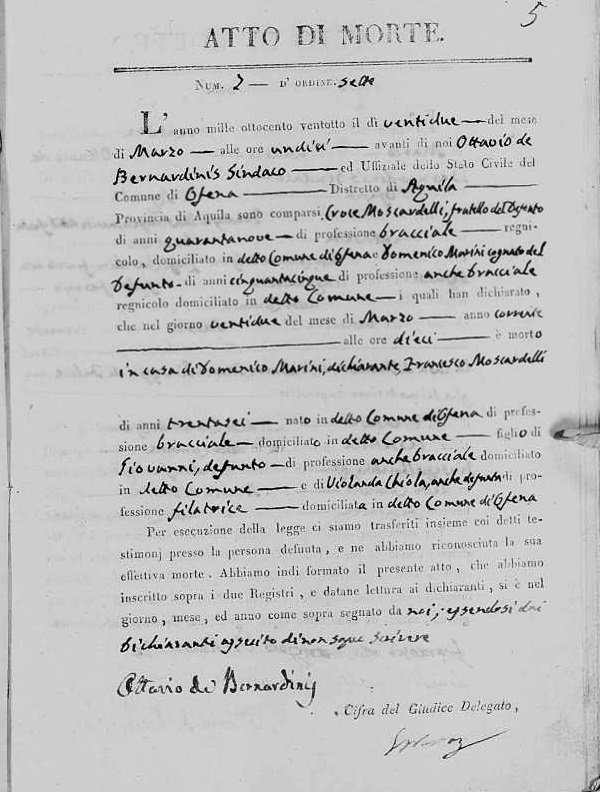 5
ATTO DI MORTE.
NUM. 7 — D' ORDINE. sette
L' anno mille ottocento ventotto il dì ventidue — del mese
di Marzo — alle ore undici — avanti di noi Ottavio de
Bernardinis Sindaco — ed Uffiziale dello Stato Civile del
Comune di Ofena — Distretto di Aquila —
Provincia di Aquila sono comparsi Croce Moscardelli, fratello del Defunto
di anni quarantanove — di professione bracciale — regni-
colo, domiciliato in detto Comune di Ofena e Domenico Marini cognato del
Defunto - di anni cinquantacinque di professione anche bracciale
regnicolo domiciliato in detto Comune — i quali han dichiarato,
che nel giorno ventidue del mese di Marzo — anno corrente
— alle ore dieci — è morto
in casa di Domenico Marini, dichiarante, Francesco Moscardelli
di anni trentasei — nato in detto Comune di Ofena di profes-
sione bracciale — domiciliato in detto Comune — figlio di
Giovanni, defunto — di professione anche bracciale domiciliato
in detto Comune — e di Violanda Chiola, anche defunta di pro-
fessione filatrice — domiciliata in detto Comune di Ofena
Per esecuzione della legge ci siamo trasferiti insieme coi detti te-
stimonj presso la persona defunta, e ne abbiamo riconosciuta la sua
effettiva morte. Abbiamo indi formato il presente atto, che abbiamo
inscritto sopra i due Registri, e datane lettura ai dichiaranti, si è nel
giorno, mese, ed anno come sopra segnato da noi; essendosi dai
Dichiaranti asserito di non saper scrivere
Ottavio de Bernardinis
Cifra del Giudice Delegato,